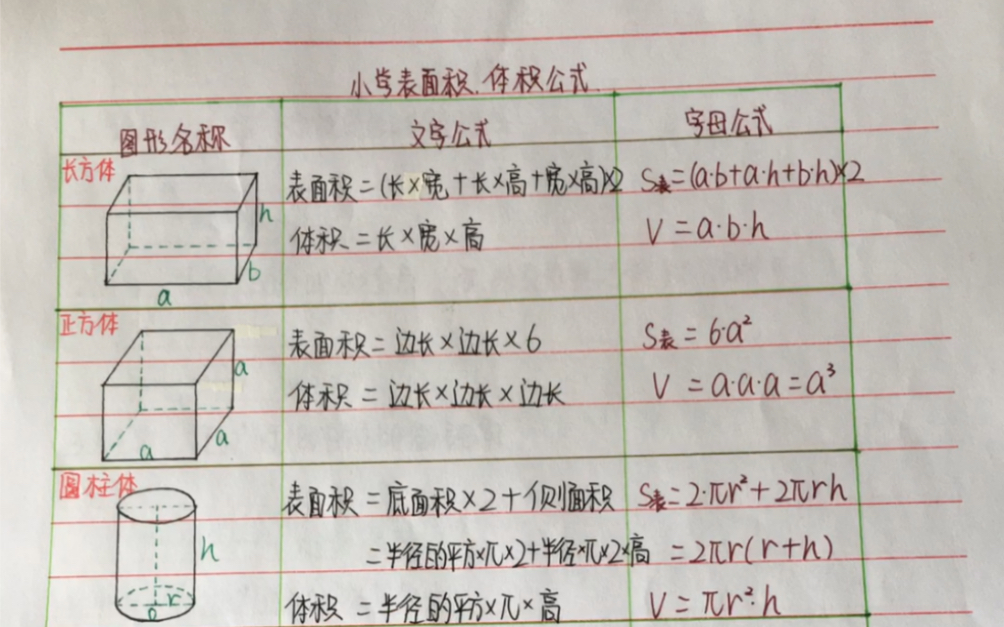 小学表面积.体积公式
图形名称 文字公式 字母公式
长方体
表面积=(长×宽+长×高+宽×高)×2 S表=(a·b+a·h+b·h)×2
h
体积=长×宽×高 V=a·b·h
b
a
正方体
表面积=边长×边长×6 S表=6·a²
a
体积=边长×边长×边长 V=a·a·a=a³
a a
圆柱体
表面积=底面积×2+侧面积 S表=2·πr²+2πrh
h
=半径的平方×π×2+半径×π×2×高 =2πr(r+h)
体积=半径的平方×π×高 V=πr²·h
r
o